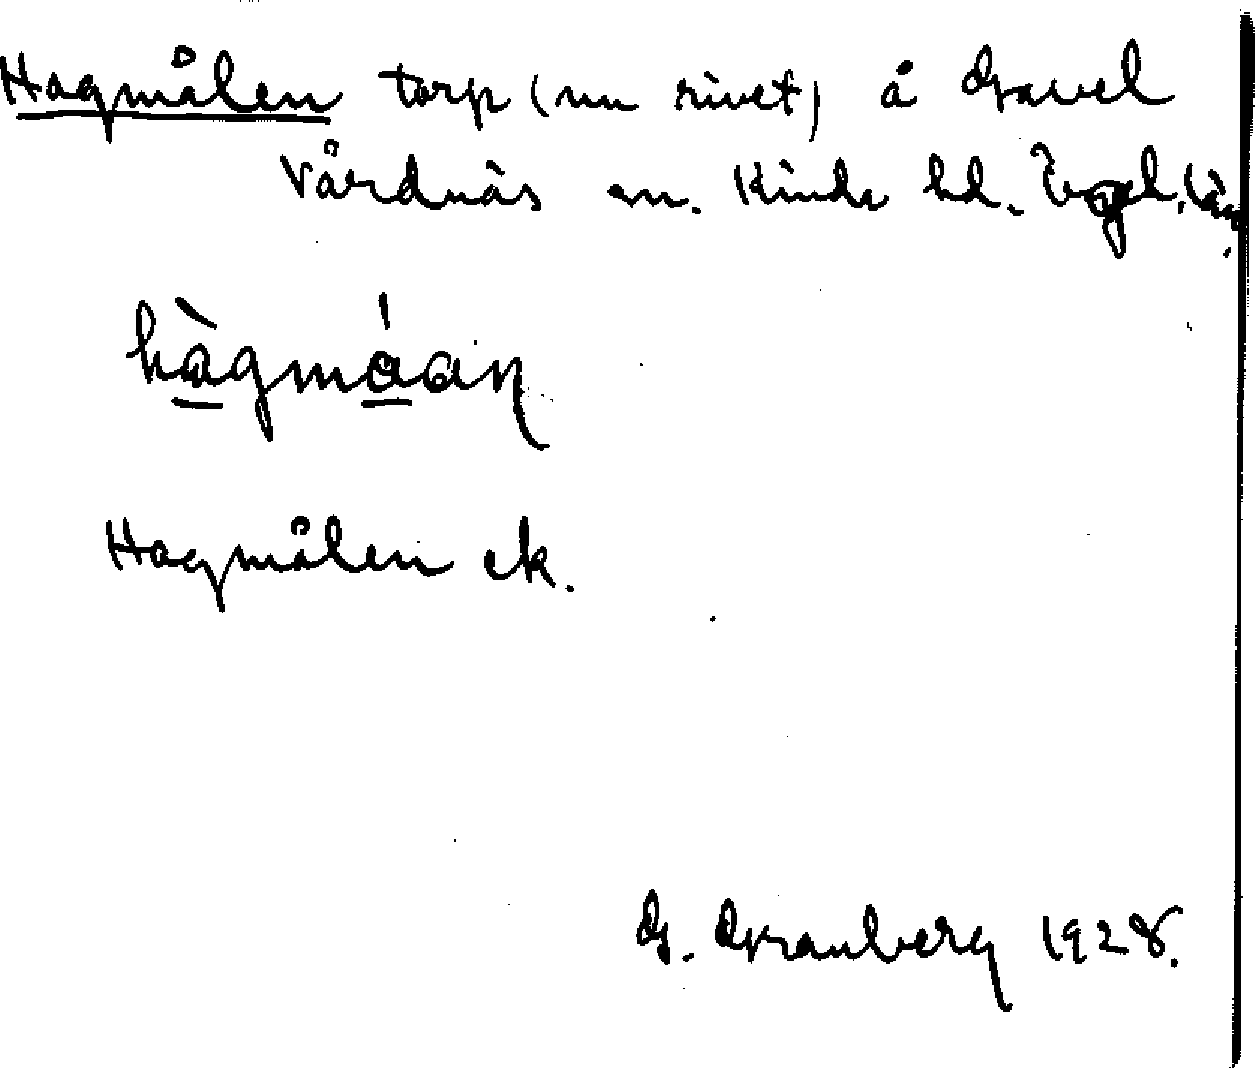 Hagmålen torp (nu rivet) å Gravel
Vårdnäs sn. Kinda hd. Ögl. län
hàgmåan
Hagmålen ek.
G. Granberg 1928.